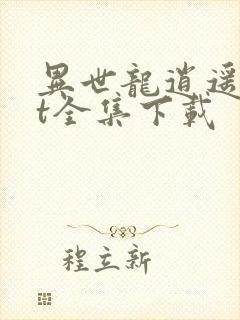 異世龍逍遥
t全集下載
程立新